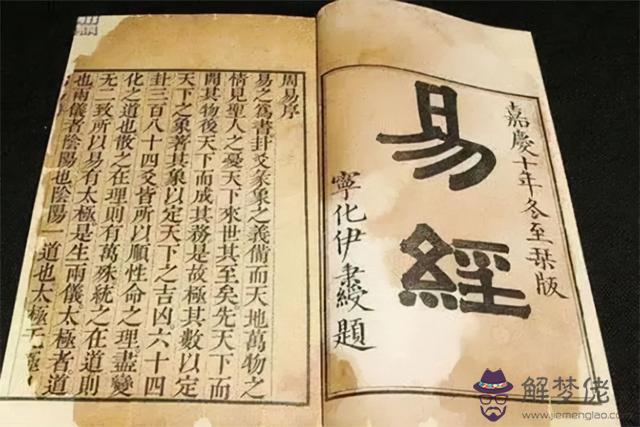 嘉慶十年冬至栞版
易經
寧化伊秉綬題
周易序
易之為書卦爻彖象之義備而天地萬物之
情見聖人之憂天下來世其至矣先天下而
開其物後天下而成其務是故極其數以定
天下之象著其象以定天下之吉凶六十四
卦三百八十四爻皆所以順性命之理盡變
化之道也散之在理則有萬殊統之在道則
无二致所以易有太極是生兩儀太極者道
也兩儀者陰陽也陰陽一道也太極无極
解梦佬
www.jiemenglao.com